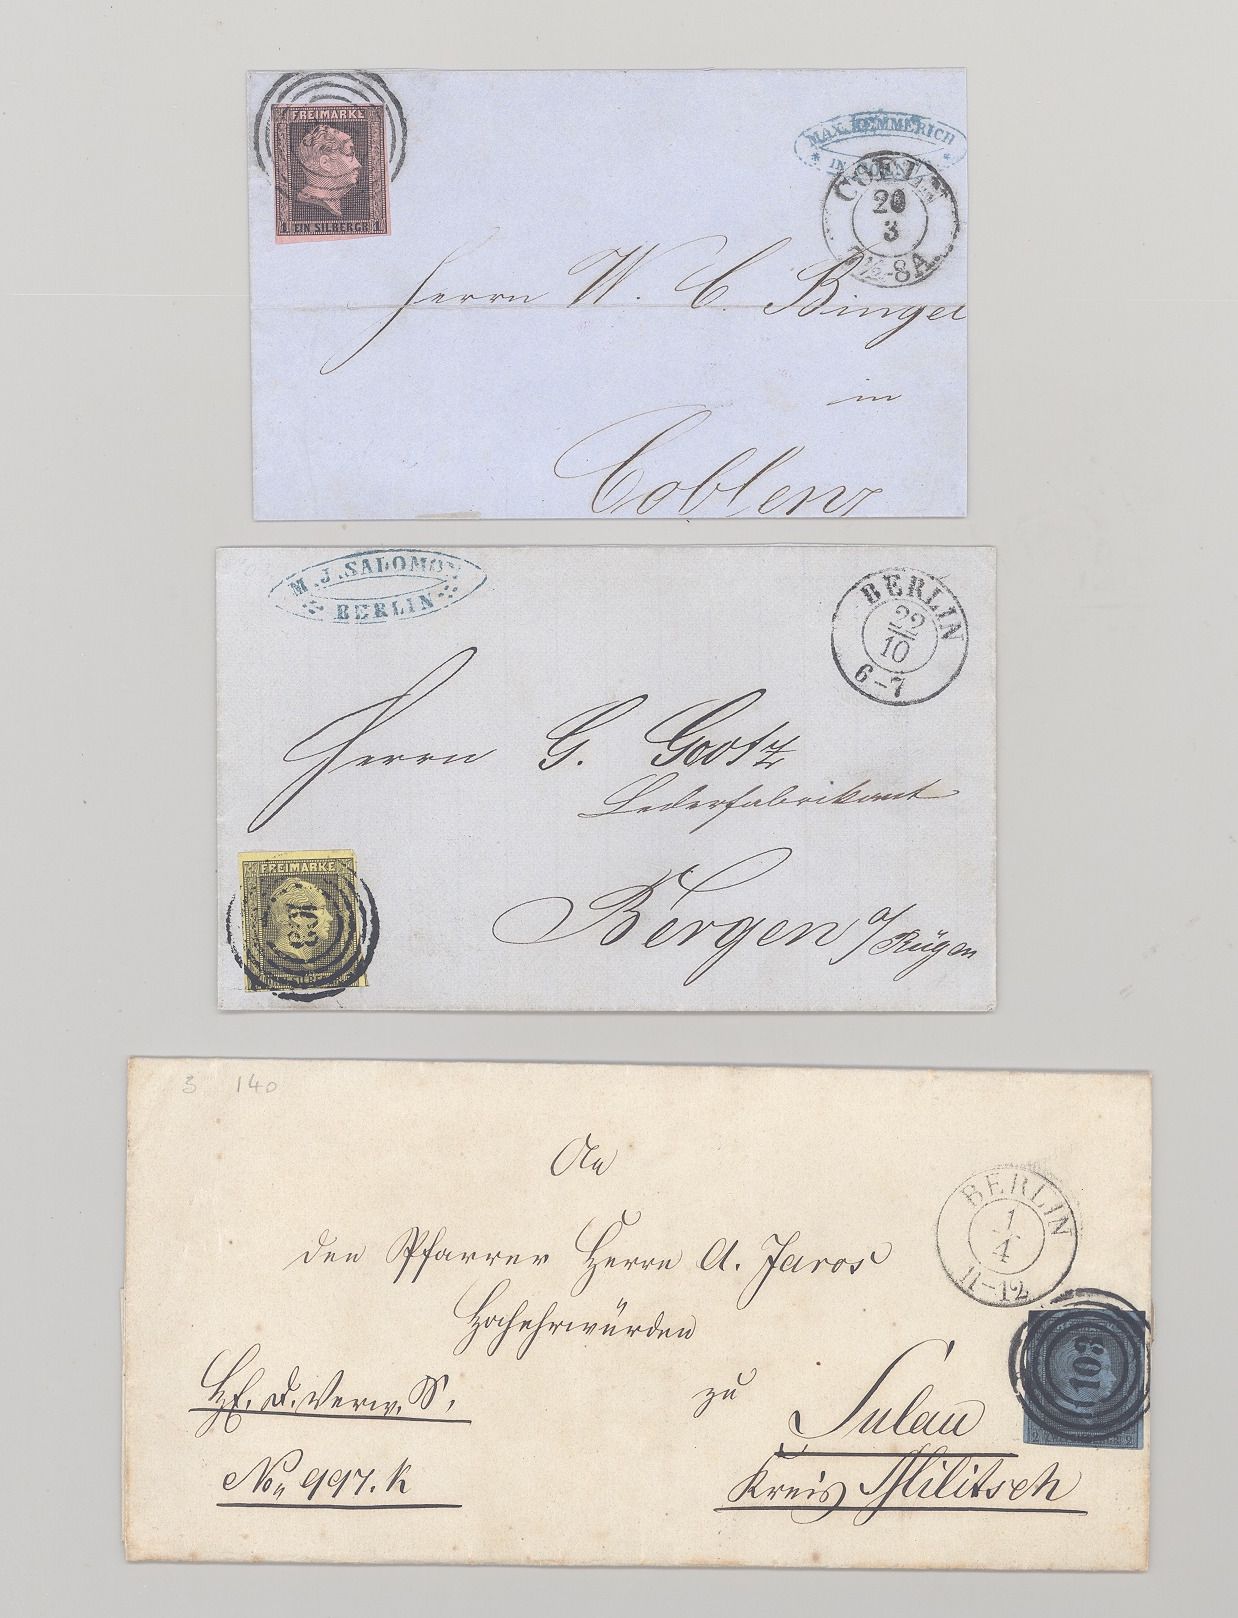 FREIMARKE
1 EIN SILBERGR. 1
MAX. KEMMERICH
IN
COELN
20
3
7½-8A.
Herrn W. C. Bingel
in
Coblenz
M. J. SALOMON
BERLIN
BERLIN
22
10
6-7
Herrn G. Gootz
Lederfabrikant
Bergen a/Rügen
FREIMARKE
SILBERGR.
3 140
An
den Pfarrer Herrn A. Jaros
Hochehrwürden
BERLIN
1
4
11-12
103
2
2
Hf. d. Verw. S.
zu
Sulau
No 997. k
Kreis Militsch